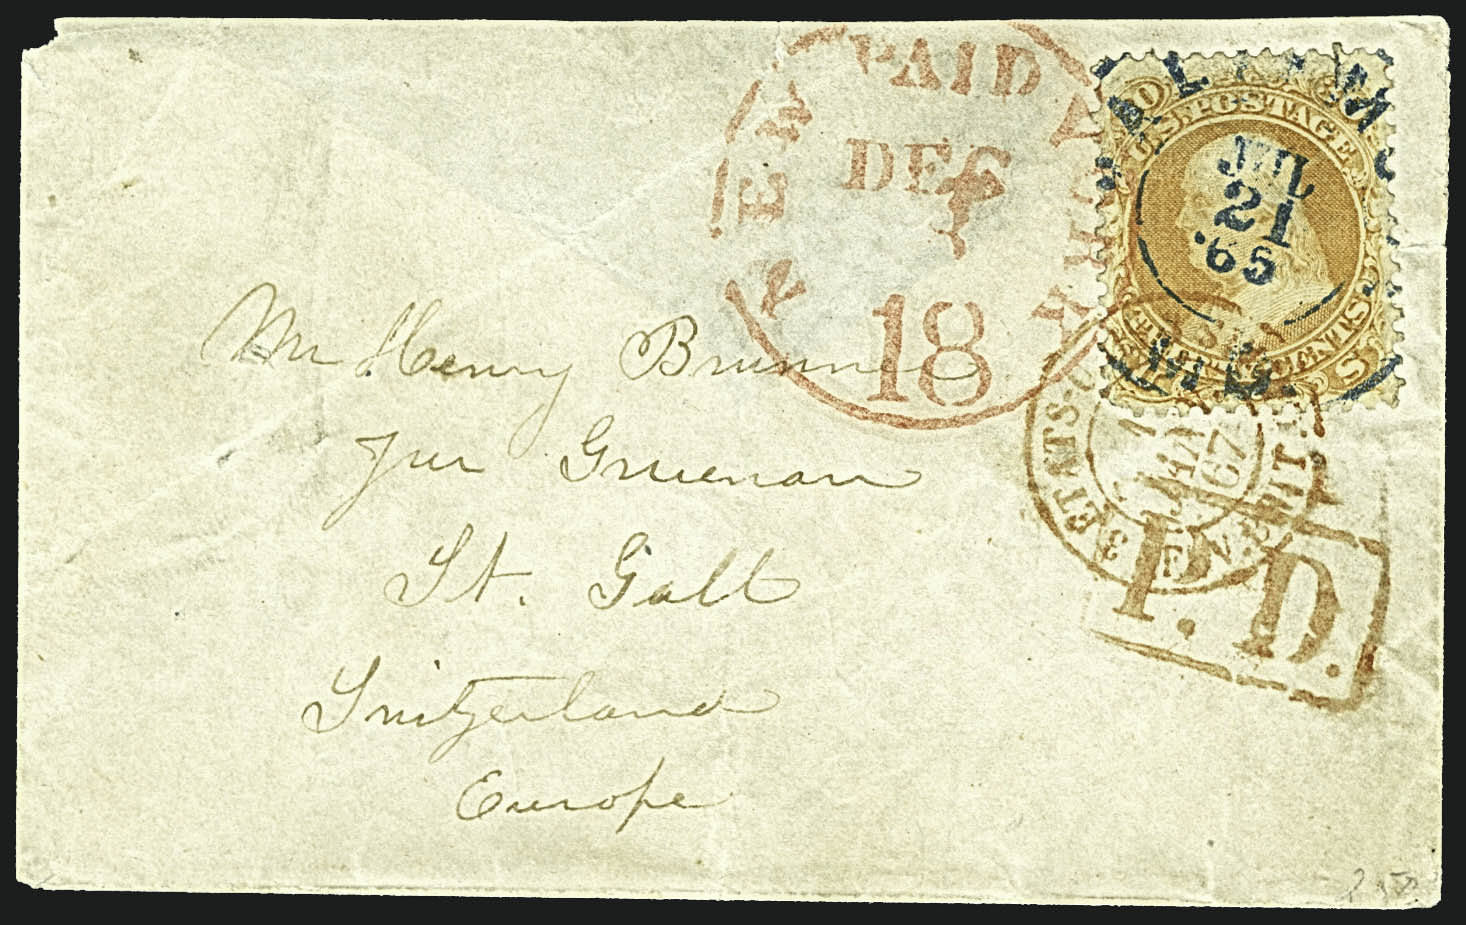 NEW YORK
PAID
DEC
18
U.S. POSTAGE
JUL
21
'65
MO.
CENTS
3 ETATS-
JAN
67
P.D.
Mr Henry Brunner
Zur Gruenau
St. Gall
Switzerland
Europe